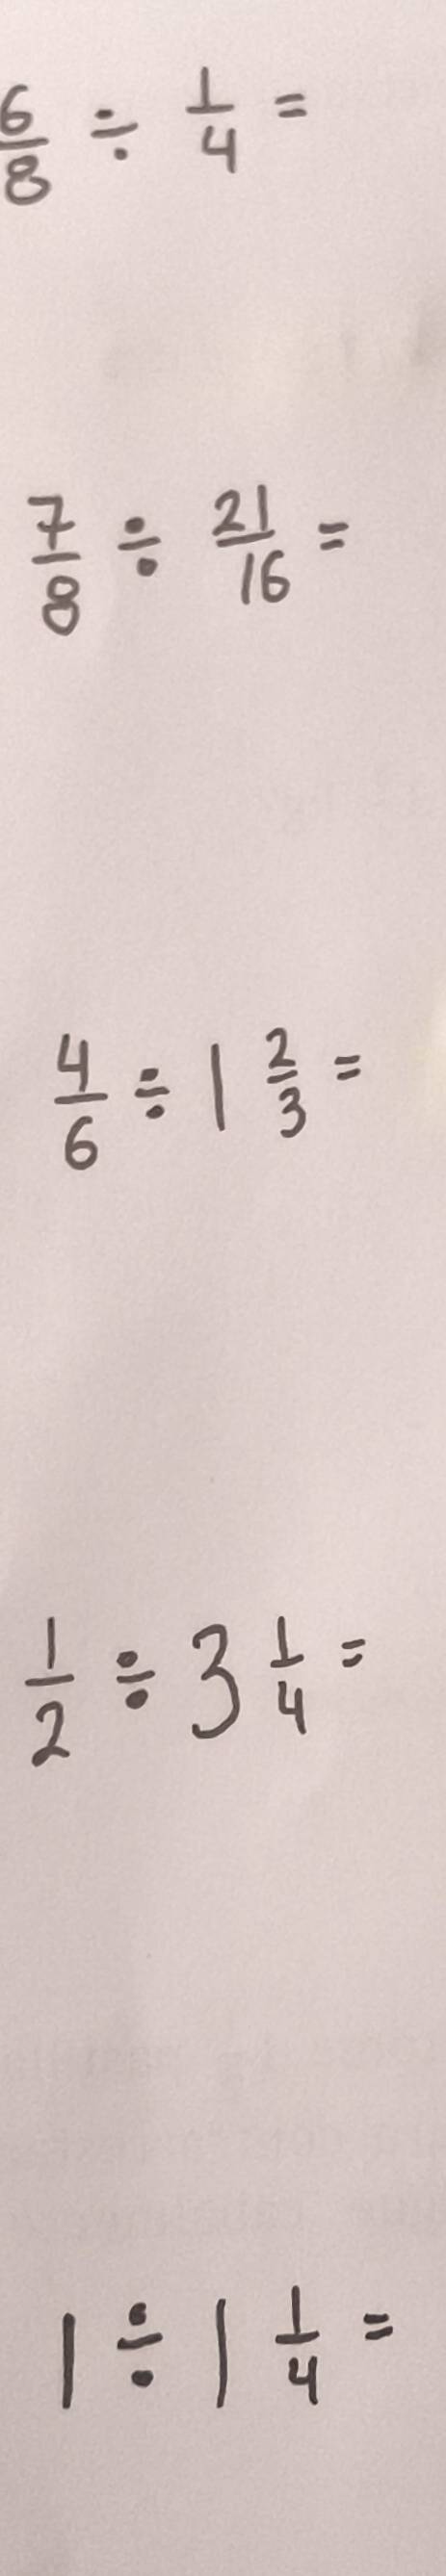 6/8 ÷ 1/4 =
7/8 ÷ 21/16 =
4/6 ÷ 1 2/3 =
1/2 ÷ 3 1/4 =
1 ÷ 1 1/4 =